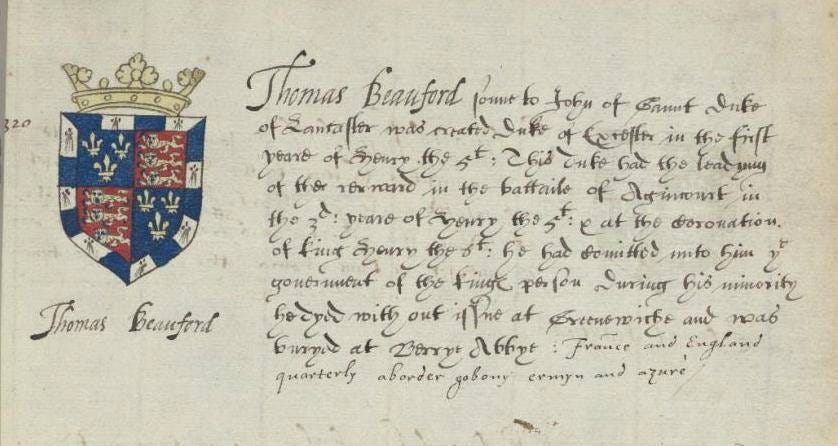 Thomas Beauford sonne to John of Gaunt Duke
of Lancaster was created Duke of Excester in the first
yeare of Henry the 5t: This Duke had the leadyng
of the rereward in the battaile of Agincourt in
the 3d: yeare of Henry the 5t: & at the Coronation
of king Henry the 6t: he had comitted unto him ye
government of the kings person during his minority
he dyed with out issue at Greenewiche and was
buryed at Berrye Abbye: France and England
quarterly aborder gobony ermyn and azure
320
Thomas Beauford